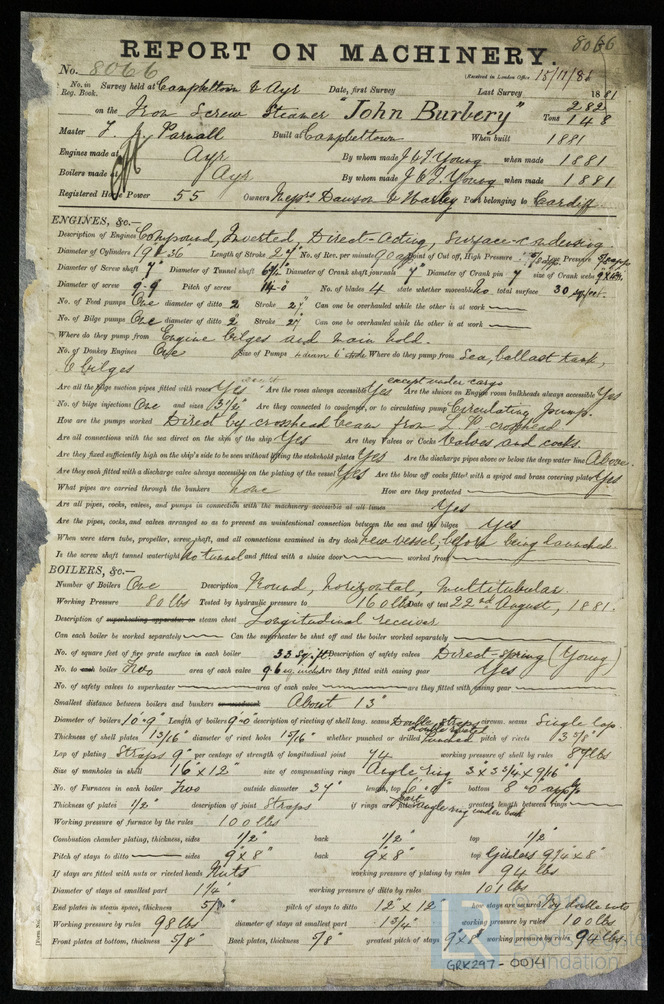 REPORT ON MACHINERY. 8066
No. 8066 (Received in London Office 18/11/81
No. in Reg. Book. Survey held at Campbeltown & Ayr Date, first Survey Last Survey 1881
on the Iron Screw Steamer "John Burbery" Tons 282 148
Master Parnall Built at Campbeltown When built 1881
Engines made at Ayr By whom made J & T. Young when made 1881
Boilers made at Ayr By whom made J & T. Young when made 1881
Registered Horse Power 55 Owners Messrs Dawson & Harley Port belonging to Cardiff
ENGINES, &c.—
Description of Engines Compound, Inverted, Direct-Acting, Surface-condensing.
Diameter of Cylinders 19 & 36" Length of Stroke 27" No. of Rev. per minute 90 app Point of Cut off, High Pressure Low Pressure
Diameter of Screw shaft 7" Diameter of Tunnel shaft 6 1/2 Diameter of Crank shaft journals 7" Diameter of Crank pin 7" size of Crank webs
Diameter of screw 9-9 Pitch of screw 14-0 No. of blades 4 state whether moveable No total surface 30 sq. feet.
No. of Feed pumps One diameter of ditto 2 Stroke 27" Can one be overhauled while the other is at work
No. of Bilge pumps One diameter of ditto 2 Stroke 27 Can one be overhauled while the other is at work
Where do they pump from Engine bilges and main hold.
No. of Donkey Engines One Size of Pumps 4 diam 6 stroke Where do they pump from Sea, ballast tank,
& bilges
Are all the bilge suction pipes fitted with roses Yes Are the roses always accessible Yes except under cargo Are the sluices on Engine room bulkheads always accessible Yes
No. of bilge injections One and sizes 3 1/2" Are they connected to condenser, or to circulating pump Circulating pump.
How are the pumps worked Direct by crosshead beam from L. P. crosshead
Are all connections with the sea direct on the skin of the ship Yes Are they Valves or Cocks Valves and cocks.
Are they fixed sufficiently high on the ship's side to be seen without lifting the stokehold plates Yes Are the discharge pipes above or below the deep water line Above.
Are they each fitted with a discharge valve always accessible on the plating of the vessel Yes Are the blow off cocks fitted with a spigot and brass covering plate Yes
What pipes are carried through the bunkers none How are they protected
Are all pipes, cocks, valves, and pumps in connection with the machinery accessible at all times Yes
Are the pipes, cocks, and valves arranged so as to prevent an unintentional connection between the sea and the bilges Yes
When were stern tube, propeller, screw shaft, and all connections examined in dry dock New vessel, before being launched
Is the screw shaft tunnel watertight No tunnel and fitted with a sluice door worked from
BOILERS, &c.—
Number of Boilers One Description Round, horizontal, multitubular.
Working Pressure 80 lbs Tested by hydraulic pressure to 160 lbs Date of test 22nd August, 1881.
Description of superheating apparatus or steam chest Longitudinal receiver
Can each boiler be worked separately Can the superheater be shut off and the boiler worked separately
No. of square feet of fire grate surface in each boiler 33 sq. ft. Description of safety valves Direct-spring (Young)
No. to each boiler Two area of each valve 9.6 sq. inches Are they fitted with easing gear Yes
No. of safety valves to superheater area of each valve are they fitted with easing gear
Smallest distance between boilers and bunkers or woodwork About 13"
Diameter of boilers 10'-9" Length of boilers 9'-0 description of riveting of shell long. seams Double straps double riveted circum. seams Single lap.
Thickness of shell plates 13/16" diameter of rivet holes 15/16" whether punched or drilled punched pitch of rivets 3 3/8"
Lap of plating Straps 9" per centage of strength of longitudinal joint 74 working pressure of shell by rules 87 lbs
Size of manholes in shell 16" x 12" size of compensating rings Angle ring 3 x 3 3/4 x 9/16"
No. of Furnaces in each boiler Two outside diameter 34" length, top 6'-0" bottom 8'-0 app
Thickness of plates 1/2" description of joint Straps if rings are fitted Part angle ring under back greatest length between rings
Working pressure of furnace by the rules 100 lbs
Combustion chamber plating, thickness, sides 1/2" back 1/2" top 1/2"
Pitch of stays to ditto sides 9 x 8" back 9" x 8" top Girders 9 1/4 x 8"
If stays are fitted with nuts or riveted heads Nuts working pressure of plating by rules 94 lbs
Diameter of stays at smallest part 1 1/4" working pressure of ditto by rules 101 lbs
End plates in steam space, thickness 5/8" pitch of stays to ditto 12" x 12" how stays are secured By double nuts
Working pressure by rules 98 lbs diameter of stays at smallest part 1 3/4" working pressure by rules 100 lbs
Front plates at bottom, thickness 5/8" Back plates, thickness 5/8 greatest pitch of stays 9" x 8" working pressure by rules 94 lbs.
GRK297-0014
Foundation